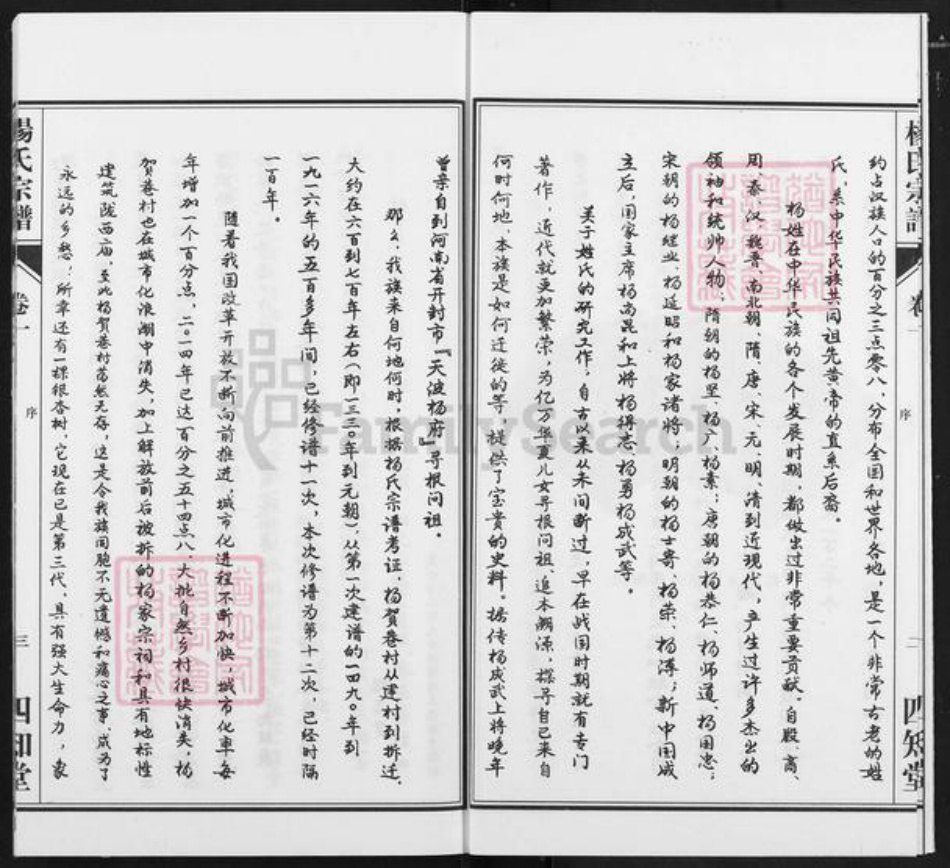 楊氏宗譜 卷一 序 二 四知堂
约占汉族人口的百分之三点零八，分布全国和世界各地，是一个非常古老的姓
氏，系中华民族共同祖先黄帝的直系后裔。
杨姓在中华民族的各个发展时期，都做出过非常重要贡献。自殷、商、
周、秦、汉、魏晋、南北朝、隋、唐、宋、元、明、清到近现代，产生过许多杰出的
领袖和统帅人物；隋朝的杨坚、杨广、杨素；唐朝的杨恭仁、杨师道、杨国忠；
宋朝的杨继业、杨延昭和杨家诸将；明朝的杨士奇、杨荣、杨溥；新中国成
立后，国家主席杨尚昆和上将杨得志、杨勇、杨成武等。
关于姓氏的研究工作，自古以来从未间断过，早在战国时期就有专门
著作，近代就更加繁荣，为亿万华夏儿女寻根问祖、追本溯源，探寻自己来自
何时何地、本族是如何迁徙的等，提供了宝贵的史料。据传杨成武上将晚年
曾亲自到河南省开封市『天波杨府』寻根问祖。
那么，我族来自何地何时，根据杨氏宗谱考证，杨贺巷村从建村到拆迁，
大约在六百到七百年左右（即一三三〇年到元朝），从第一次建谱的一四九〇年到
一九二六年的五百多年间，已经修谱十一次，本次修谱为第十二次，已经时隔
一百年。
随着我国改革开放不断向前推进，城市化进程不断加快，城市化率每
年增加一个百分点，二〇一四年已达百分之五十四点八，大批自然乡村很快消失，杨
贺巷村也在城市化浪潮中消失，加上解放前后被拆的杨家宗祠和具有地标性
建筑陇西庙，至此杨贺巷村荡然无存，这是令我族同胞不无遗憾和痛心之事，成为了
永远的乡愁；所幸还有一棵银杏树，它现在已是第三代，具有强大生命力，象
楊氏宗譜 卷一 序 三 四知堂
FamilySearch